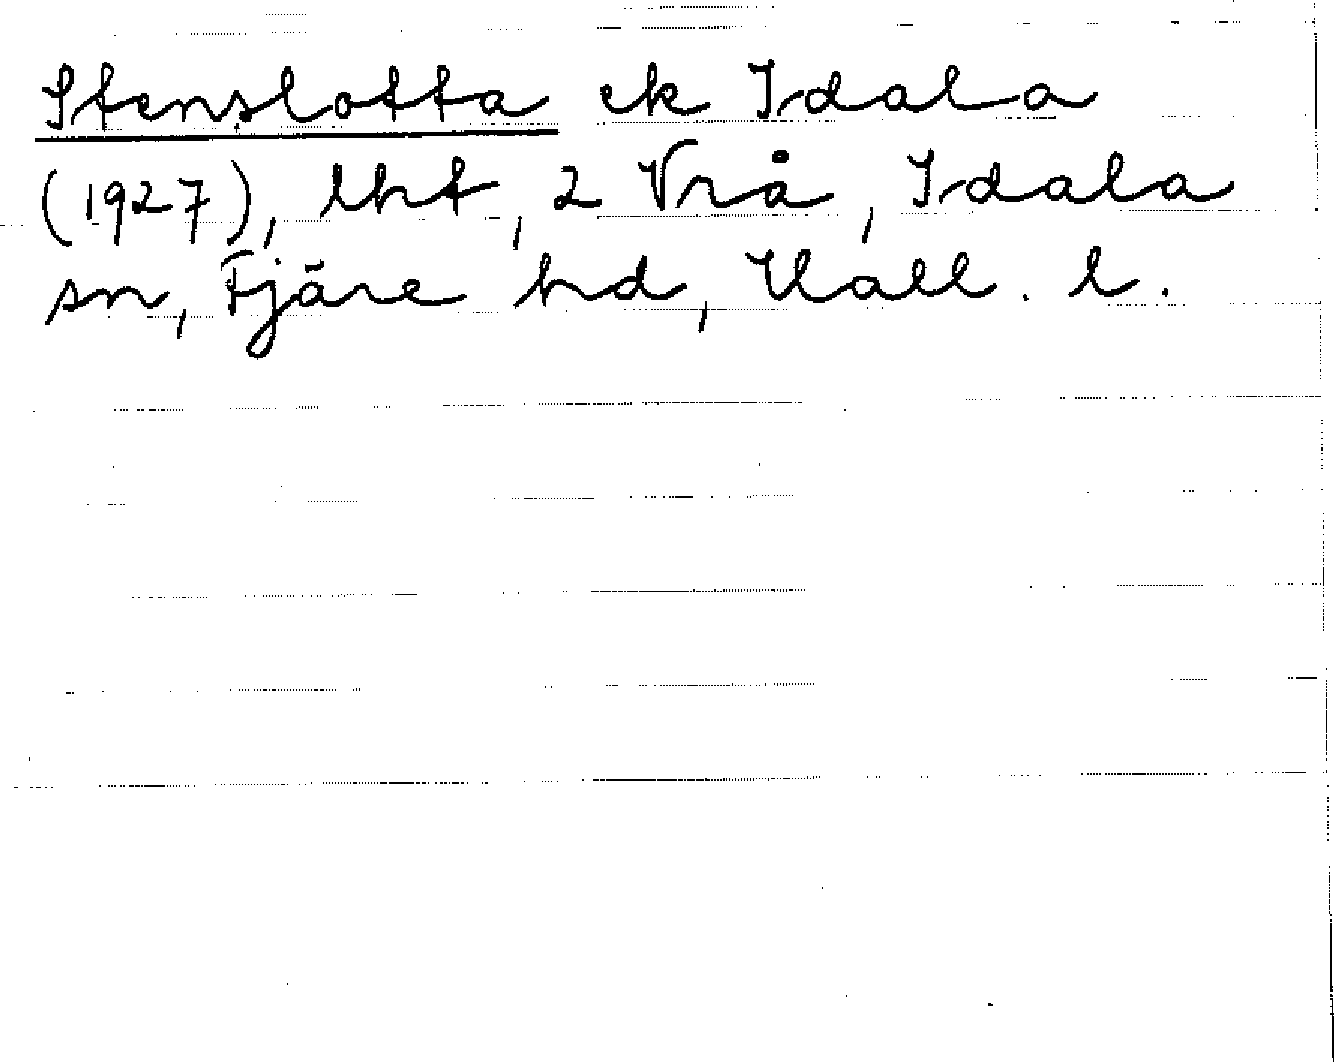 Stenslotta ek Idala
(1927), lht, 2 Vrå, Idala
sn, Fjäre hd, Hall. l.